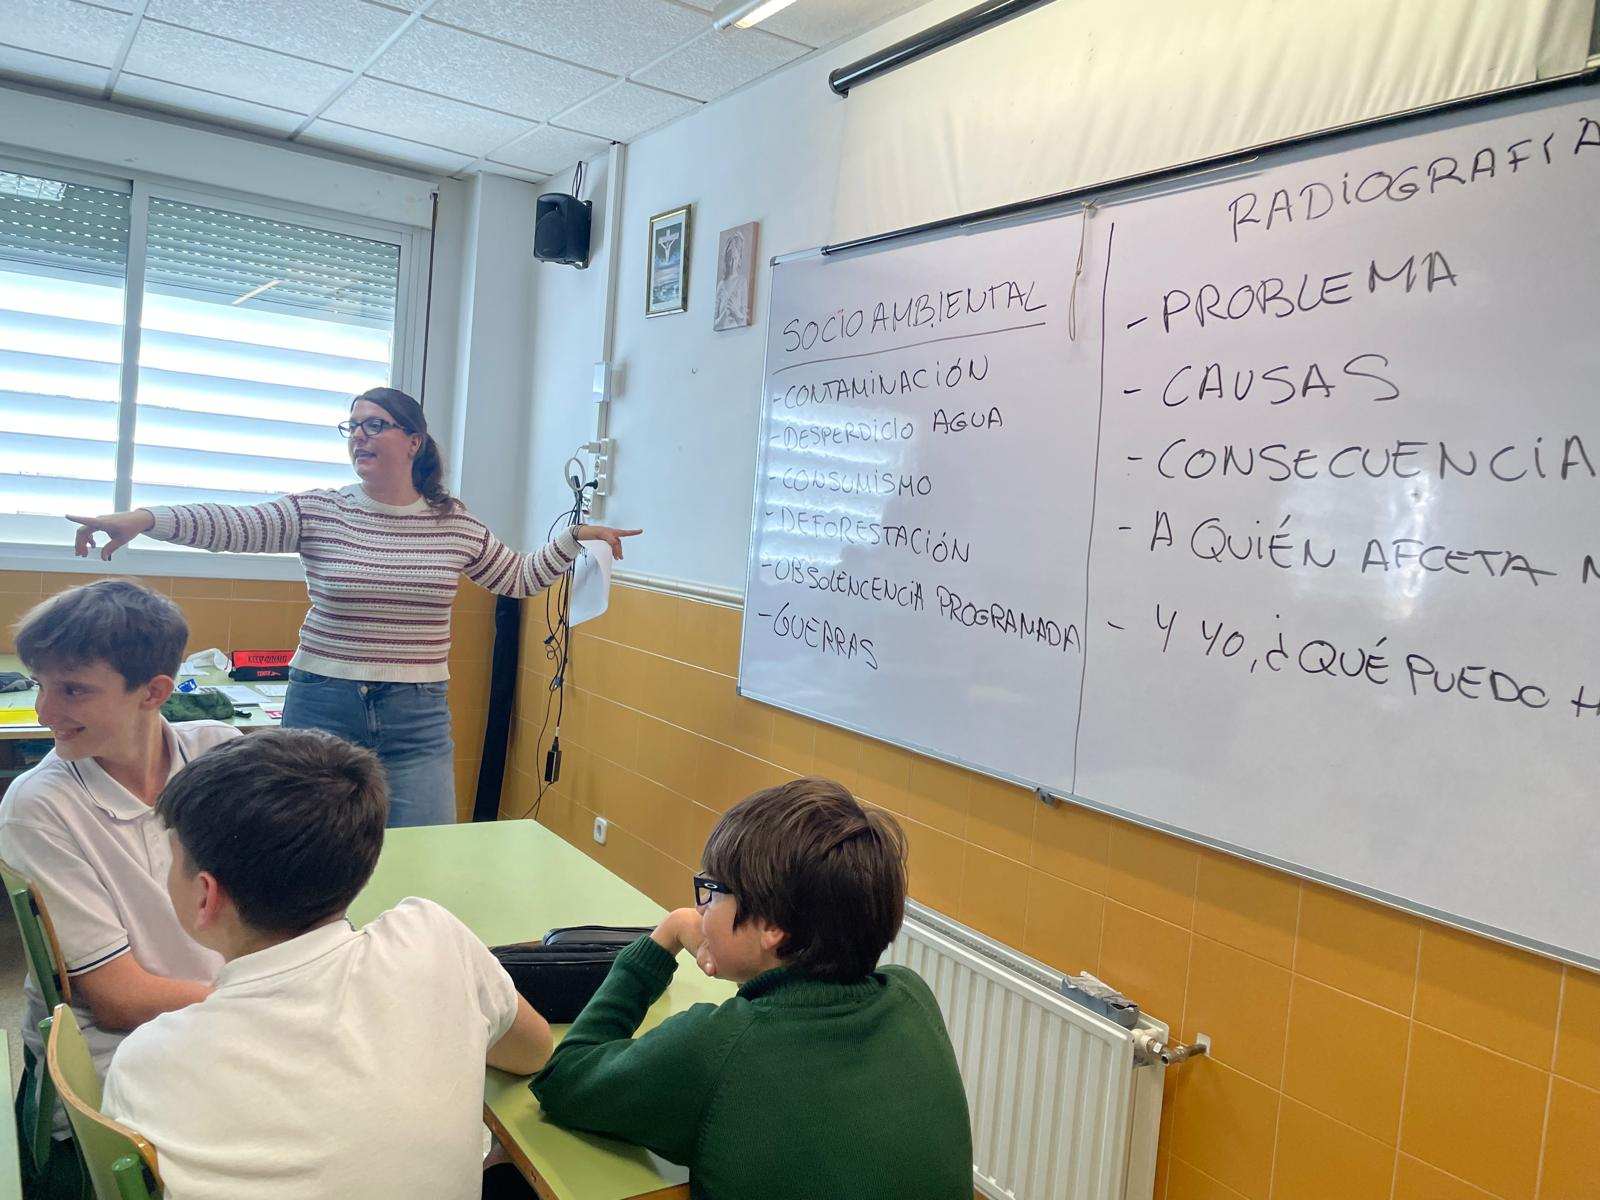 SOCIOAMBIENTAL
-CONTAMINACIÓN
-DESPERDICIO AGUA
-CONSUMISMO
-DEFORESTACIÓN
-OBSOLENCENCIA PROGRAMADA
-GUERRAS
RADIOGRAFÍA
-PROBLEMA
-CAUSAS
-CONSECUENCIA
-A QUIÉN AFCETA
-Y YO, ¿QUÉ PUEDO